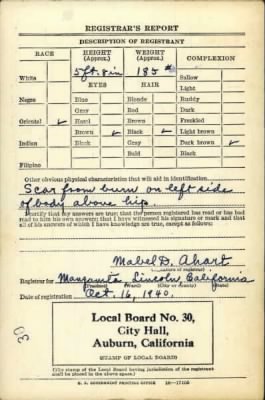 REGISTRAR'S REPORT
DESCRIPTION OF REGISTRANT
RACE HEIGHT (Approx.) WEIGHT (Approx.) COMPLEXION
5 ft. 8 in 185 #
White EYES HAIR Sallow
Light
Negro Blue Blonde Ruddy
Gray Red Dark
Oriental ✓ Hazel Brown Freckled
Brown ✓ Black ✓ Light brown
Indian Black Gray Dark brown ✓
Bald Black
Filipino
Other obvious physical characteristics that will aid in identification
Scar from burn on left side
of body above hip.
I certify that my answers are true; that the person registered has read or has had
read to him his own answers; that I have witnessed his signature or mark and that
all of his answers of which I have knowledge are true, except as follows:
Mabel D. Ahart
(Signature of registrar)
Registrar for Manzanita Lincoln, California
(Precinct) (Ward) (City or County) (State)
Date of registration Oct. 16, 1940.
Local Board No. 30,
City Hall,
Auburn, California
(STAMP OF LOCAL BOARD)
(The stamp of the Local Board having jurisdiction of the registrant
shall be placed in the above space.)
U. S. GOVERNMENT PRINTING OFFICE
30